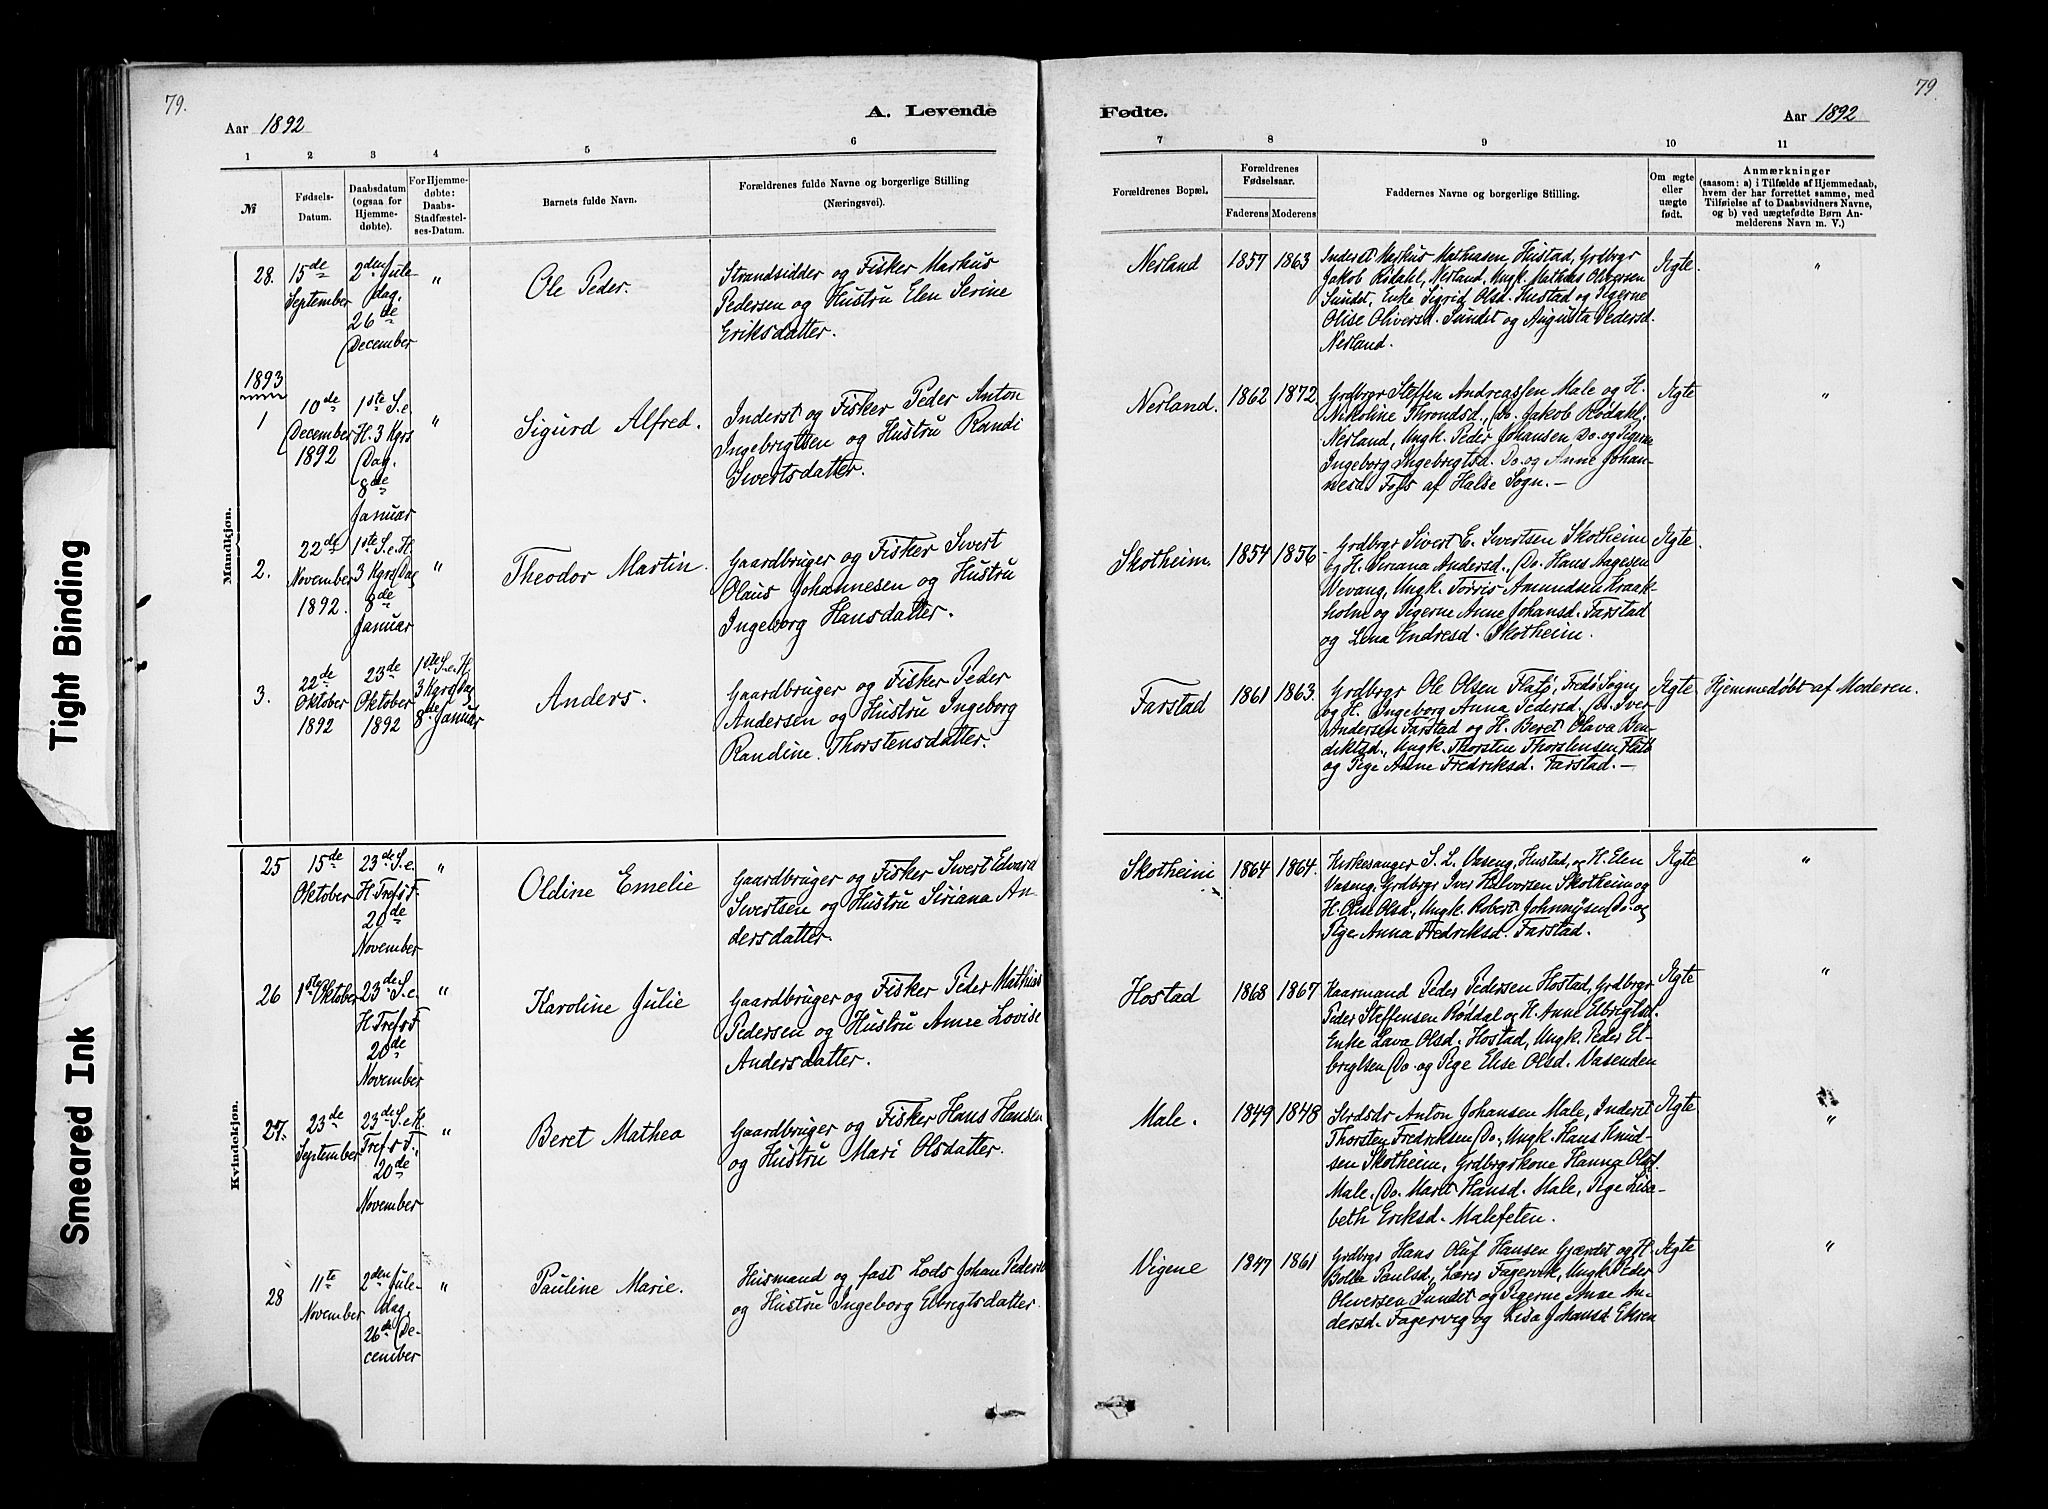 79.
Aar 1892
A. Levende
1 2 3 4 5 6
№
Fødsels-
Datum.
Daabsdatum
(ogsaa for
Hjemme-
døbte).
For Hjemme-
døbte:
Daabs-
Stadfæstel-
ses-Datum.
Barnets fulde Navn.
Forældrenes fulde Navne og borgerlige Stilling
(Næringsvei).
Mandkjøn.
28.
15de
September
2den Jule-
dag.
26de
December
"
Ole Peder.
Strandsidder og Fisker Markus
Pedersen og Hustru Elen Serine
Eriksdatter.
1893
1
10de
December
1892
1ste S.e.
H. 3 Kgrs
Dag.
8de
Januar
"
Sigurd Alfred.
Inderst og Fisker Peder Anton
Ingebrigtsen og Hustru Randi
Sivertsdatter.
2.
22de
November
1892.
1ste S.e.H.
3 Kgrs Dag
8de
Januar
"
Theodor Martin.
Gaardbruger og Fisker Sivert
Olaus Johannesen og Hustru
Ingeborg Hansdatter.
3.
22de
Oktober
1892
23de
Oktober
1892
1ste S.e.H.
3 Kgrs Dag
8de Januar
Anders.
Gaardbruger og Fisker Peder
Andersen og Hustru Ingeborg
Randine Thorstensdatter.
Kvindekjøn.
25
15de
Oktober
23de S.e.
H. Tref. F.
20de
November
"
Oldine Emelie
Gaardbruger og Fisker Sivert Edvard
Sivertsen og Hustru Siriana An-
dersdatter.
26
1ste Oktober
23de S.e.
H. Tref. F.
20de
November
"
Karoline Julie
Gaardbruger og Fisker Peder Mathias
Pedersen og Hustru Anne Lovise
Andersdatter.
27.
23de
September
23de S.e.H.
Tref. F.
20de
November
"
Beret Mathea
Gaardbruger og Fisker Hans Hansen
og Hustru Mari Olsdatter.
28
11te
November
2den Jule-
dag
26de De-
cember
"
Pauline Marie.
Husmand og fast Lods Johan Peders
og Hustru Ingeborg Elbrigtsdatter.
79.
Fødte.
Aar 1892
7 8 9 10 11
Forældrenes Bopæl.
Forældrenes
Fødselsaar.
Faderens Moderens
Faddernes Navne og borgerlige Stilling.
Om ægte
eller
uægte
født.
Anmærkninger
(saasom: a) i Tilfælde af Hjemmedaab,
hvem der har forrettet samme, med
Tilføielse af to Daabsvidners Navne,
og b) ved uægtefødte Børn An-
melderens Navn m. V.)
Nerland 1857 1863
Inderst Markus Mathiasen Hustad, Grdbrgr
Jakob Rødahl, Nerland, Ungk. Mathias Oliversen
Sundet, Enke Sigrid Olsd. Hustad og Pigerne
Olise Oliversd. Sundet og Augusta Pedersd.
Nerland.
Ægte. "
Nerland. 1862 1872.
Grdbrgr Steffen Andreassen Male og H.
Nikoline Throndsd., Do. Jakob Rødahl,
Nerland, Ungk. Peder Johansen Do. og Pigerne
Ingeborg Ingebrigtsd. Do. og Anne Johan-
nesd. Foss af Halse Sogn. —
Ægte "
Skotheim. 1854 1856
Grdbrgr Sivert E. Sivertsen Skotheim
og H. Siriana Andersd., Do. Hans Aagesen
Vevang, Ungk. Torris Amundsen Kraak-
holm og Pigerne Anne Johansd. Farstad
og Lena Endresd. Skotheim.
Ægte
Farstad 1861 1863.
Grdbrgr Ole Olsen Flatø, Fredø Sogn
og H. Ingeborg Anna Pedersd., Do. Iver
Andersen Farstad og H. Beret Olava Ben-
diktsd., Ungk. Thorsten Thorstensen Flatø
og Pige Anne Fredriksd. Farstad. —
Ægte Hjemmedøbt af Moderen.
Skotheim 1864 1864.
Kirkesanger S. L. Vaseng, Hustad, og H. Elen
Vaseng, Grdbrgr Iver Halvorsen Skotheim og
H. Olise Olsd., Ungk. Robert Johnnysen Do. og
Pige Anna Fredriksd. Farstad.
Ægte "
Hostad 1868 1867
Kaarmand Peder Pedersen Hostad, Grdbrgr
Peder Steffensen Røddal og H. Anne Elbrigtsd.
Enke Lava Olsd. Hostad, Ungk. Peder El-
brigtsen Do. og Pige Elise Olsd. Vasenden
Ægte "
Male. 1849 1848
Anton Johansen Male, Inderst
Thorsten Fredriksen Do., Ungk. Hans Knud-
sen Skotheim, Grdbrgrkone Hanna Olsd.
Male, Do. Marit Hansd. Male, Pige Lisa-
beth Eriksd. Malefeten.
Ægte "
Vigene 1847 1861
Grdbrgr Hans Oluf Hansen Gjærdet og H.
Paulsd., Fagervik, Ungk. Peder
Oliversen Sundet og Pigerne Anne An-
dersd. Fagervig og Lisa Johansd. Ekren
Ægte "
Tight Binding
Smeared Ink